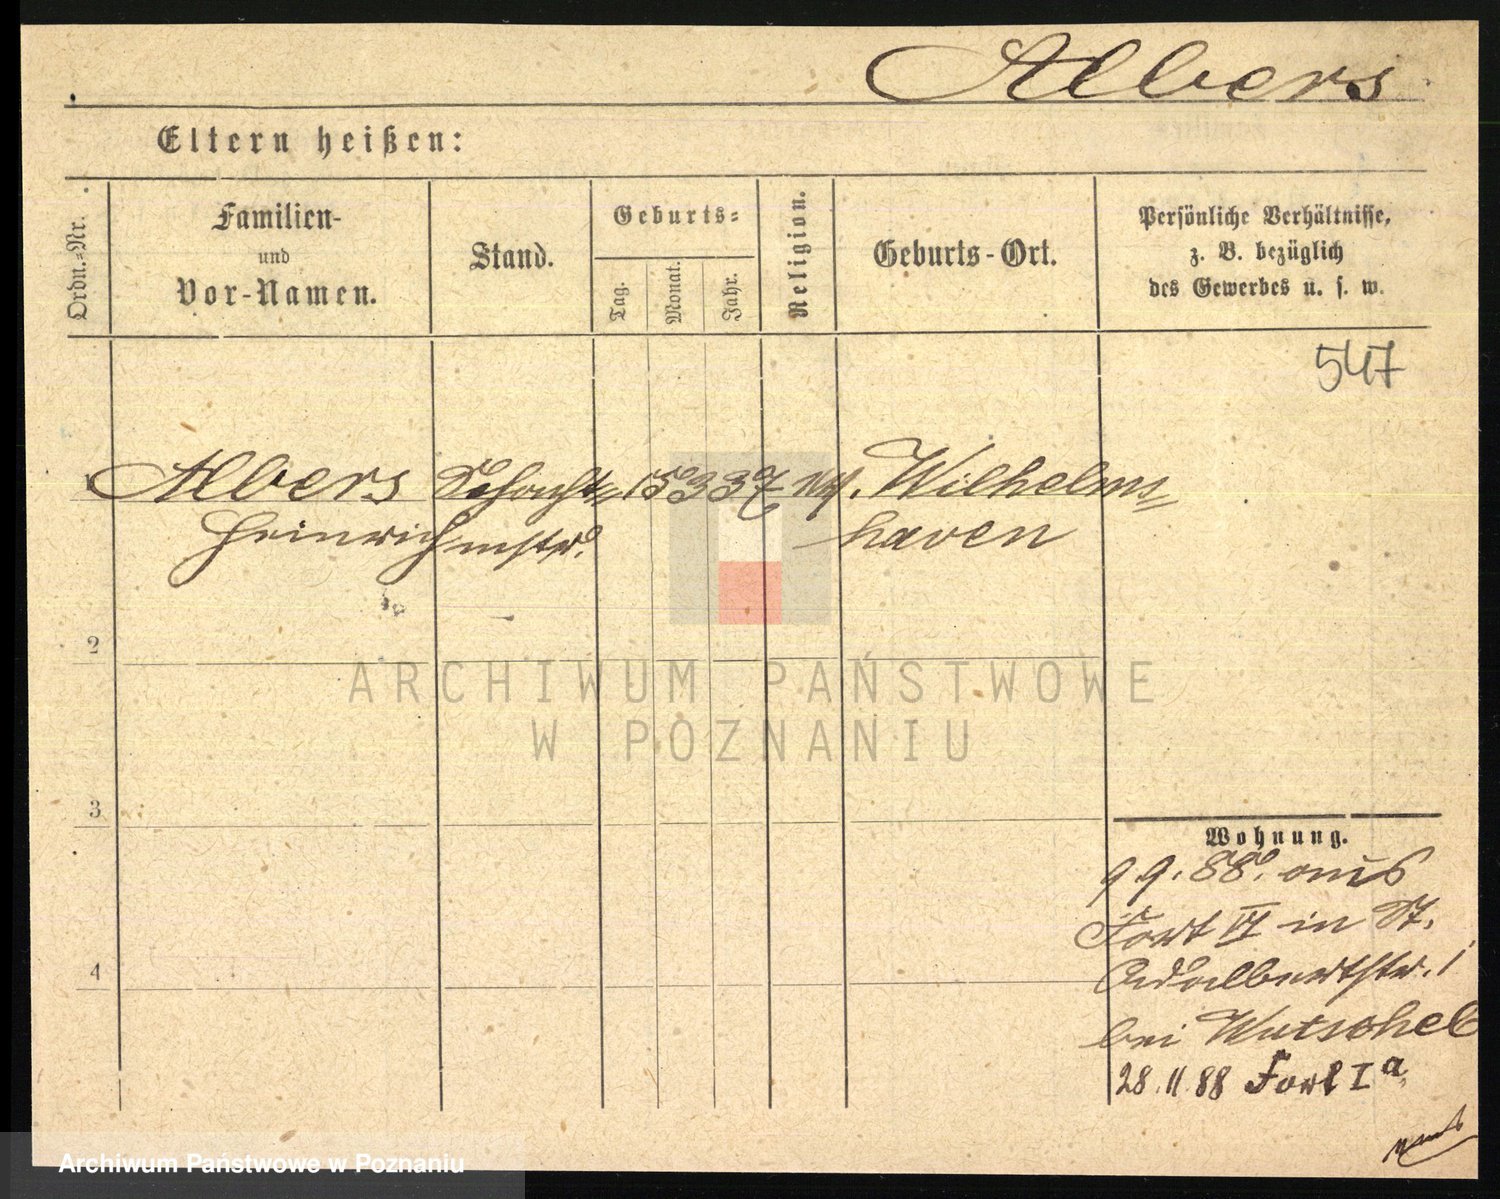 Albers
Eltern heißen:
Ordn.=Nr.
Familien-
und
Vor-Namen.
Stand.
Geburts=
Tag.
Monat.
Jahr.
Religion.
Geburts-Ort.
Persönliche Verhältnisse,
z. B. bezüglich
des Gewerbes u. s. w.
547
1 Albers Schacht= 15 3 37 Wilhelms=
Heinrich mstr. haven
2
ARCHIWUM PAŃSTWOWE
W POZNANIU
3
Wohnung.
9.9.88. aus
Fort VI in St.
Adalbertstr. 1
bei Wutschel
4
28.11.88 Fort I a
Archiwum Państwowe w Poznaniu